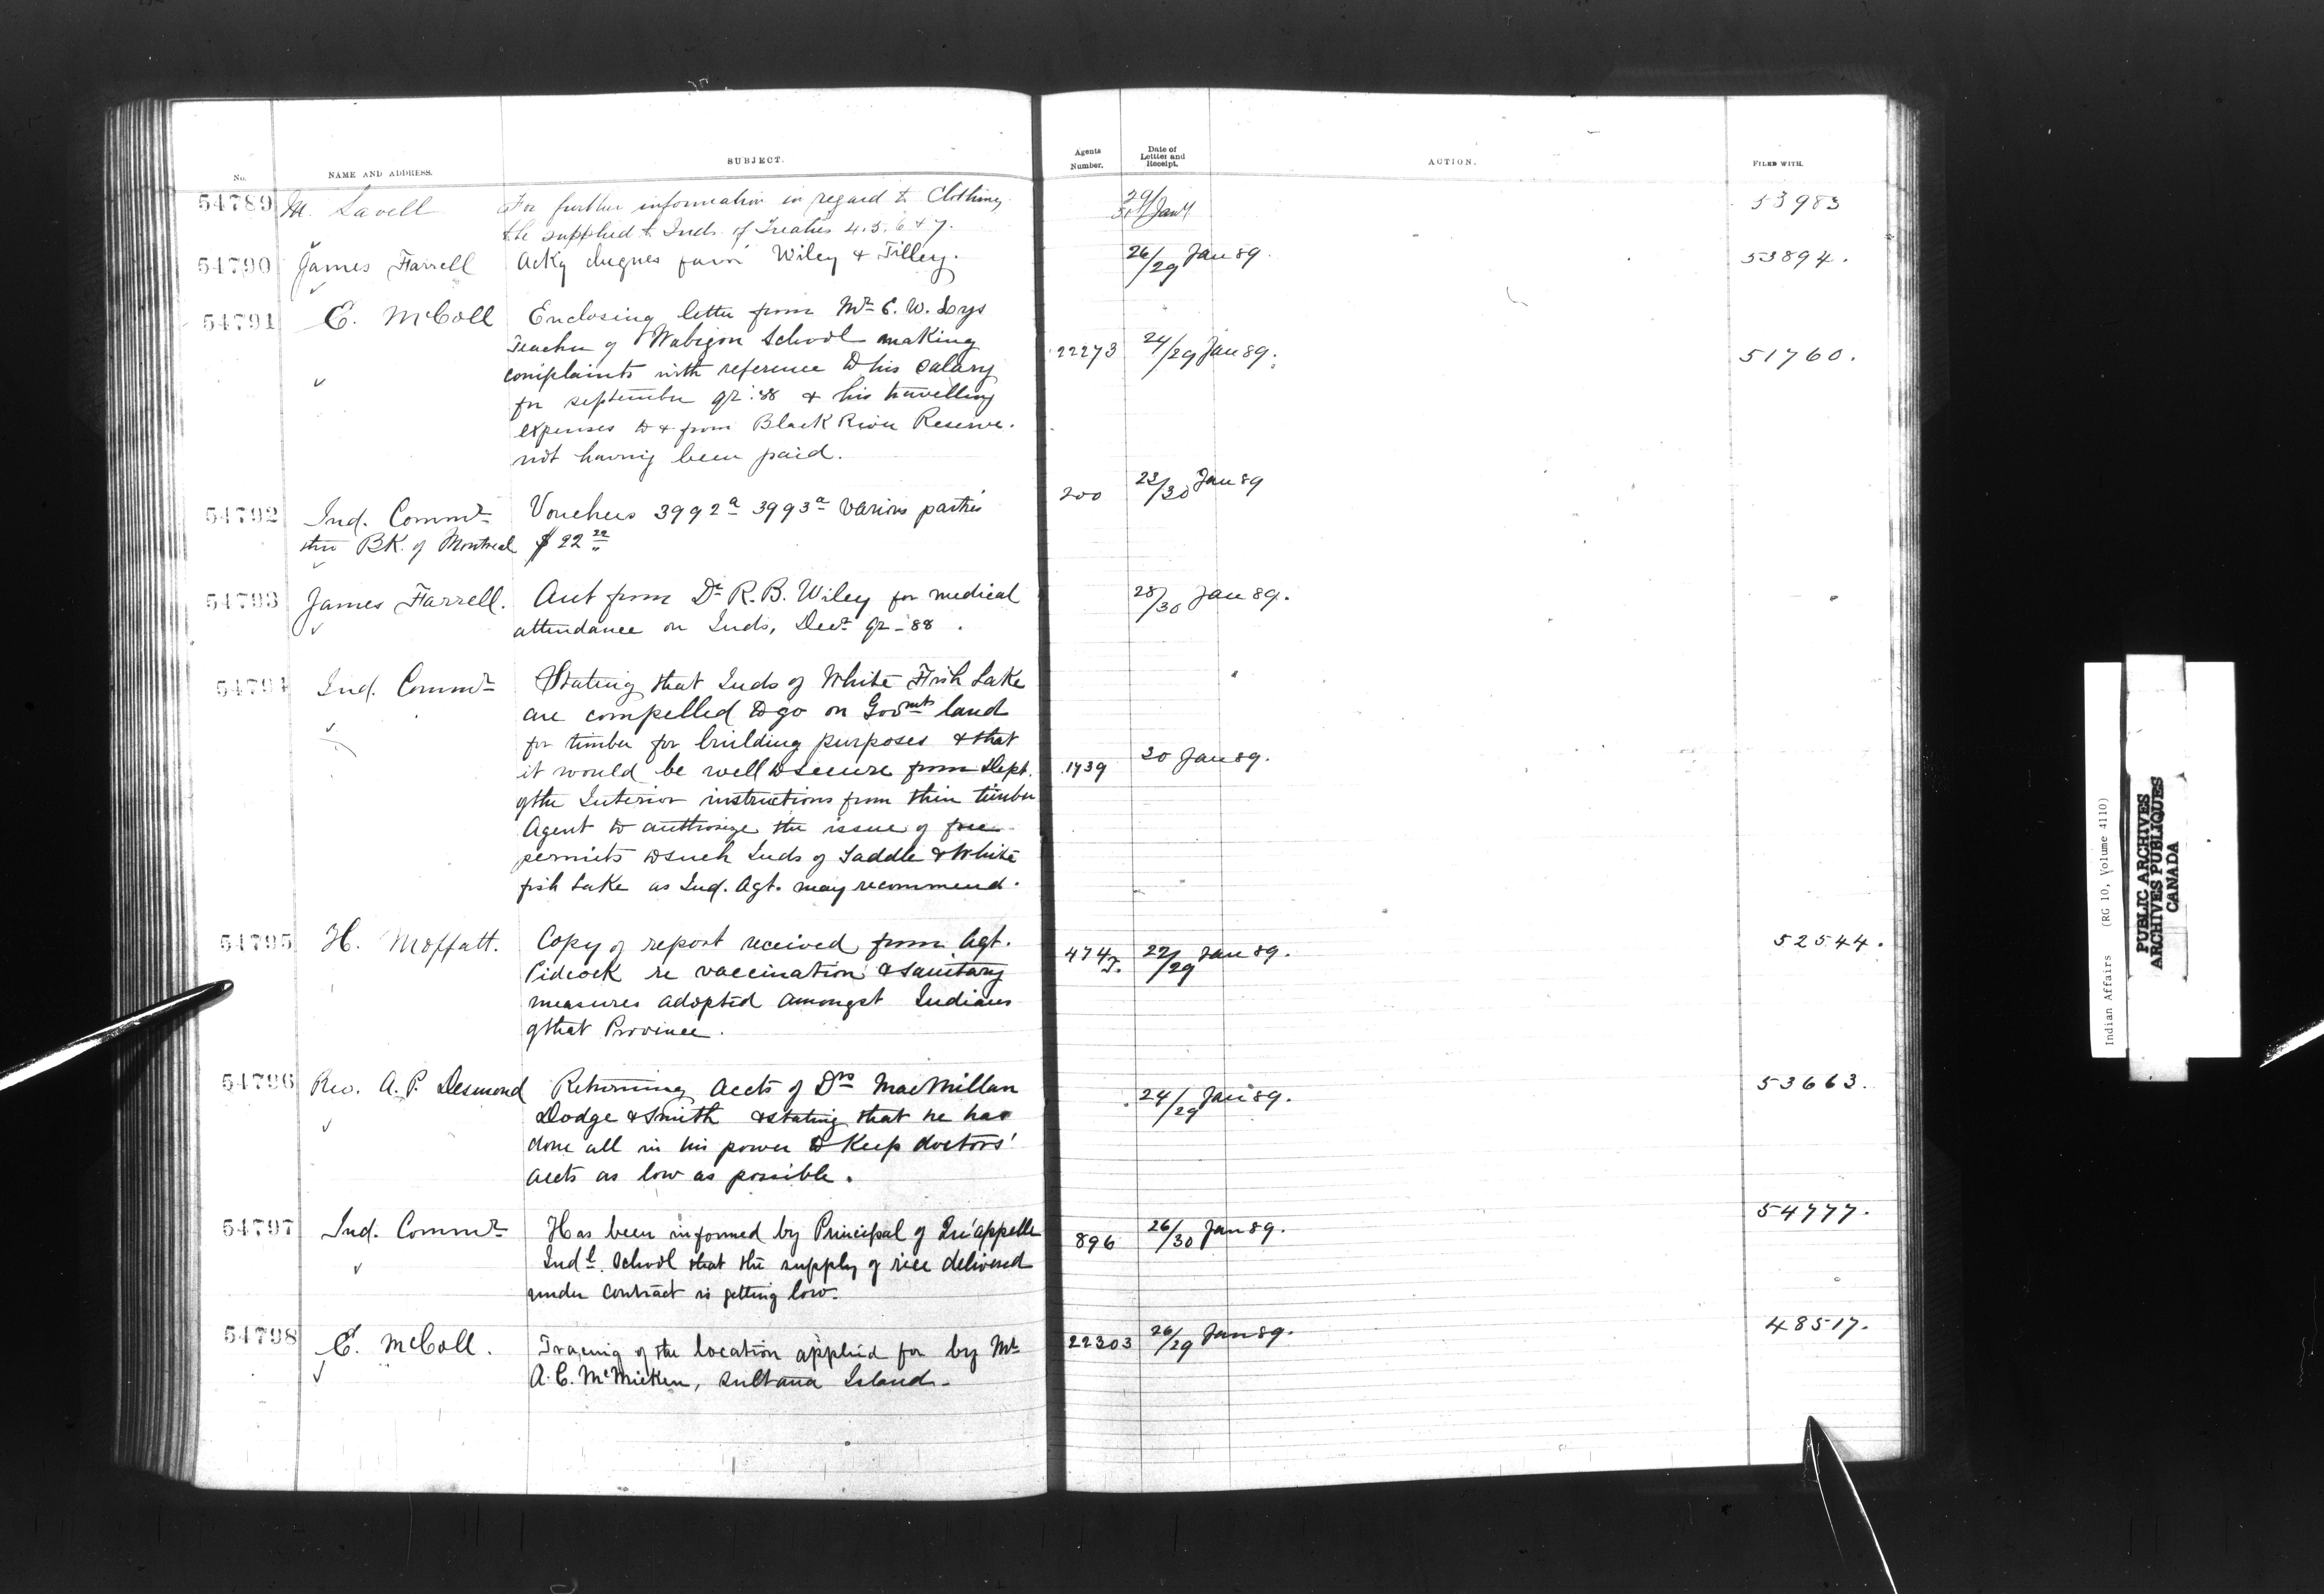 No. NAME AND ADDRESS. SUBJECT. Agents Number. Date of Letter and Receipt. ACTION. FILED WITH.
54789 M. Lavell For further information in regard to Clothing 29/31 Jany 53983
to be supplied to Inds. of Treaties 4. 5. 6 & 7.
54790 James Farrell Ackg cheques favor Wiley & Tilley. 26/29 Jan 89. 53894.
54791 E. McColl Enclosing letter from Mr. E. W. Loys
Teacher of Wabigon School making 22273 24/29 Jan 89. 51760.
complaints with reference to his salary
for September qr. '88 & his travelling
expenses to & from Black River Reserve.
not having been paid.
54792 Ind. Commr Vouchers 3992a 3993a various parties 200 23/30 Jan 89
thro BK. of Montreal $ 22 22
54793 James Farrell. Acct from Dr R. B. Wiley for medical 28/30 Jan 89.
attendance on Inds, Decr qr - 88.
54794 Ind. Commr Stating that Inds of White Fish Lake
are compelled to go on Govmts land
for timber for building purposes & that
it would be well to secure from Dept. 1739 30 Jan 89.
of the Interior instructions from their timber
Agent to authorize the issue of free
permits to such Inds of Saddle & White
fish Lake as Ind. Agt. may recommend.
54795 H. Moffatt. Copy of report received from Agt. 474 22/29 Jan 89. 52544.
Pidcock re vaccination & sanitary
measures adopted amongst Indians
of that Province.
54796 Rev. A. P. Desmond Returning accts of Drs MacMillan 24/29 Jan 89. 53663.
Dodge & Smith & stating that he has
done all in his power to keep doctors'
accts as low as possible.
54797 Ind. Commr Has been informed by Principal of Qu'appelle 896 26/30 Jan 89. 54777.
Indl. School that the supply of rice delivered
under contract is getting low.
54798 E. McColl. Tracing of the location applied for by Mr 22303 26/29 Jan 89. 48517.
A. C. McMicken, Sultana Island.
Indian Affairs (RG 10, Volume 4110)
PUBLIC ARCHIVES
ARCHIVES PUBLIQUES
CANADA